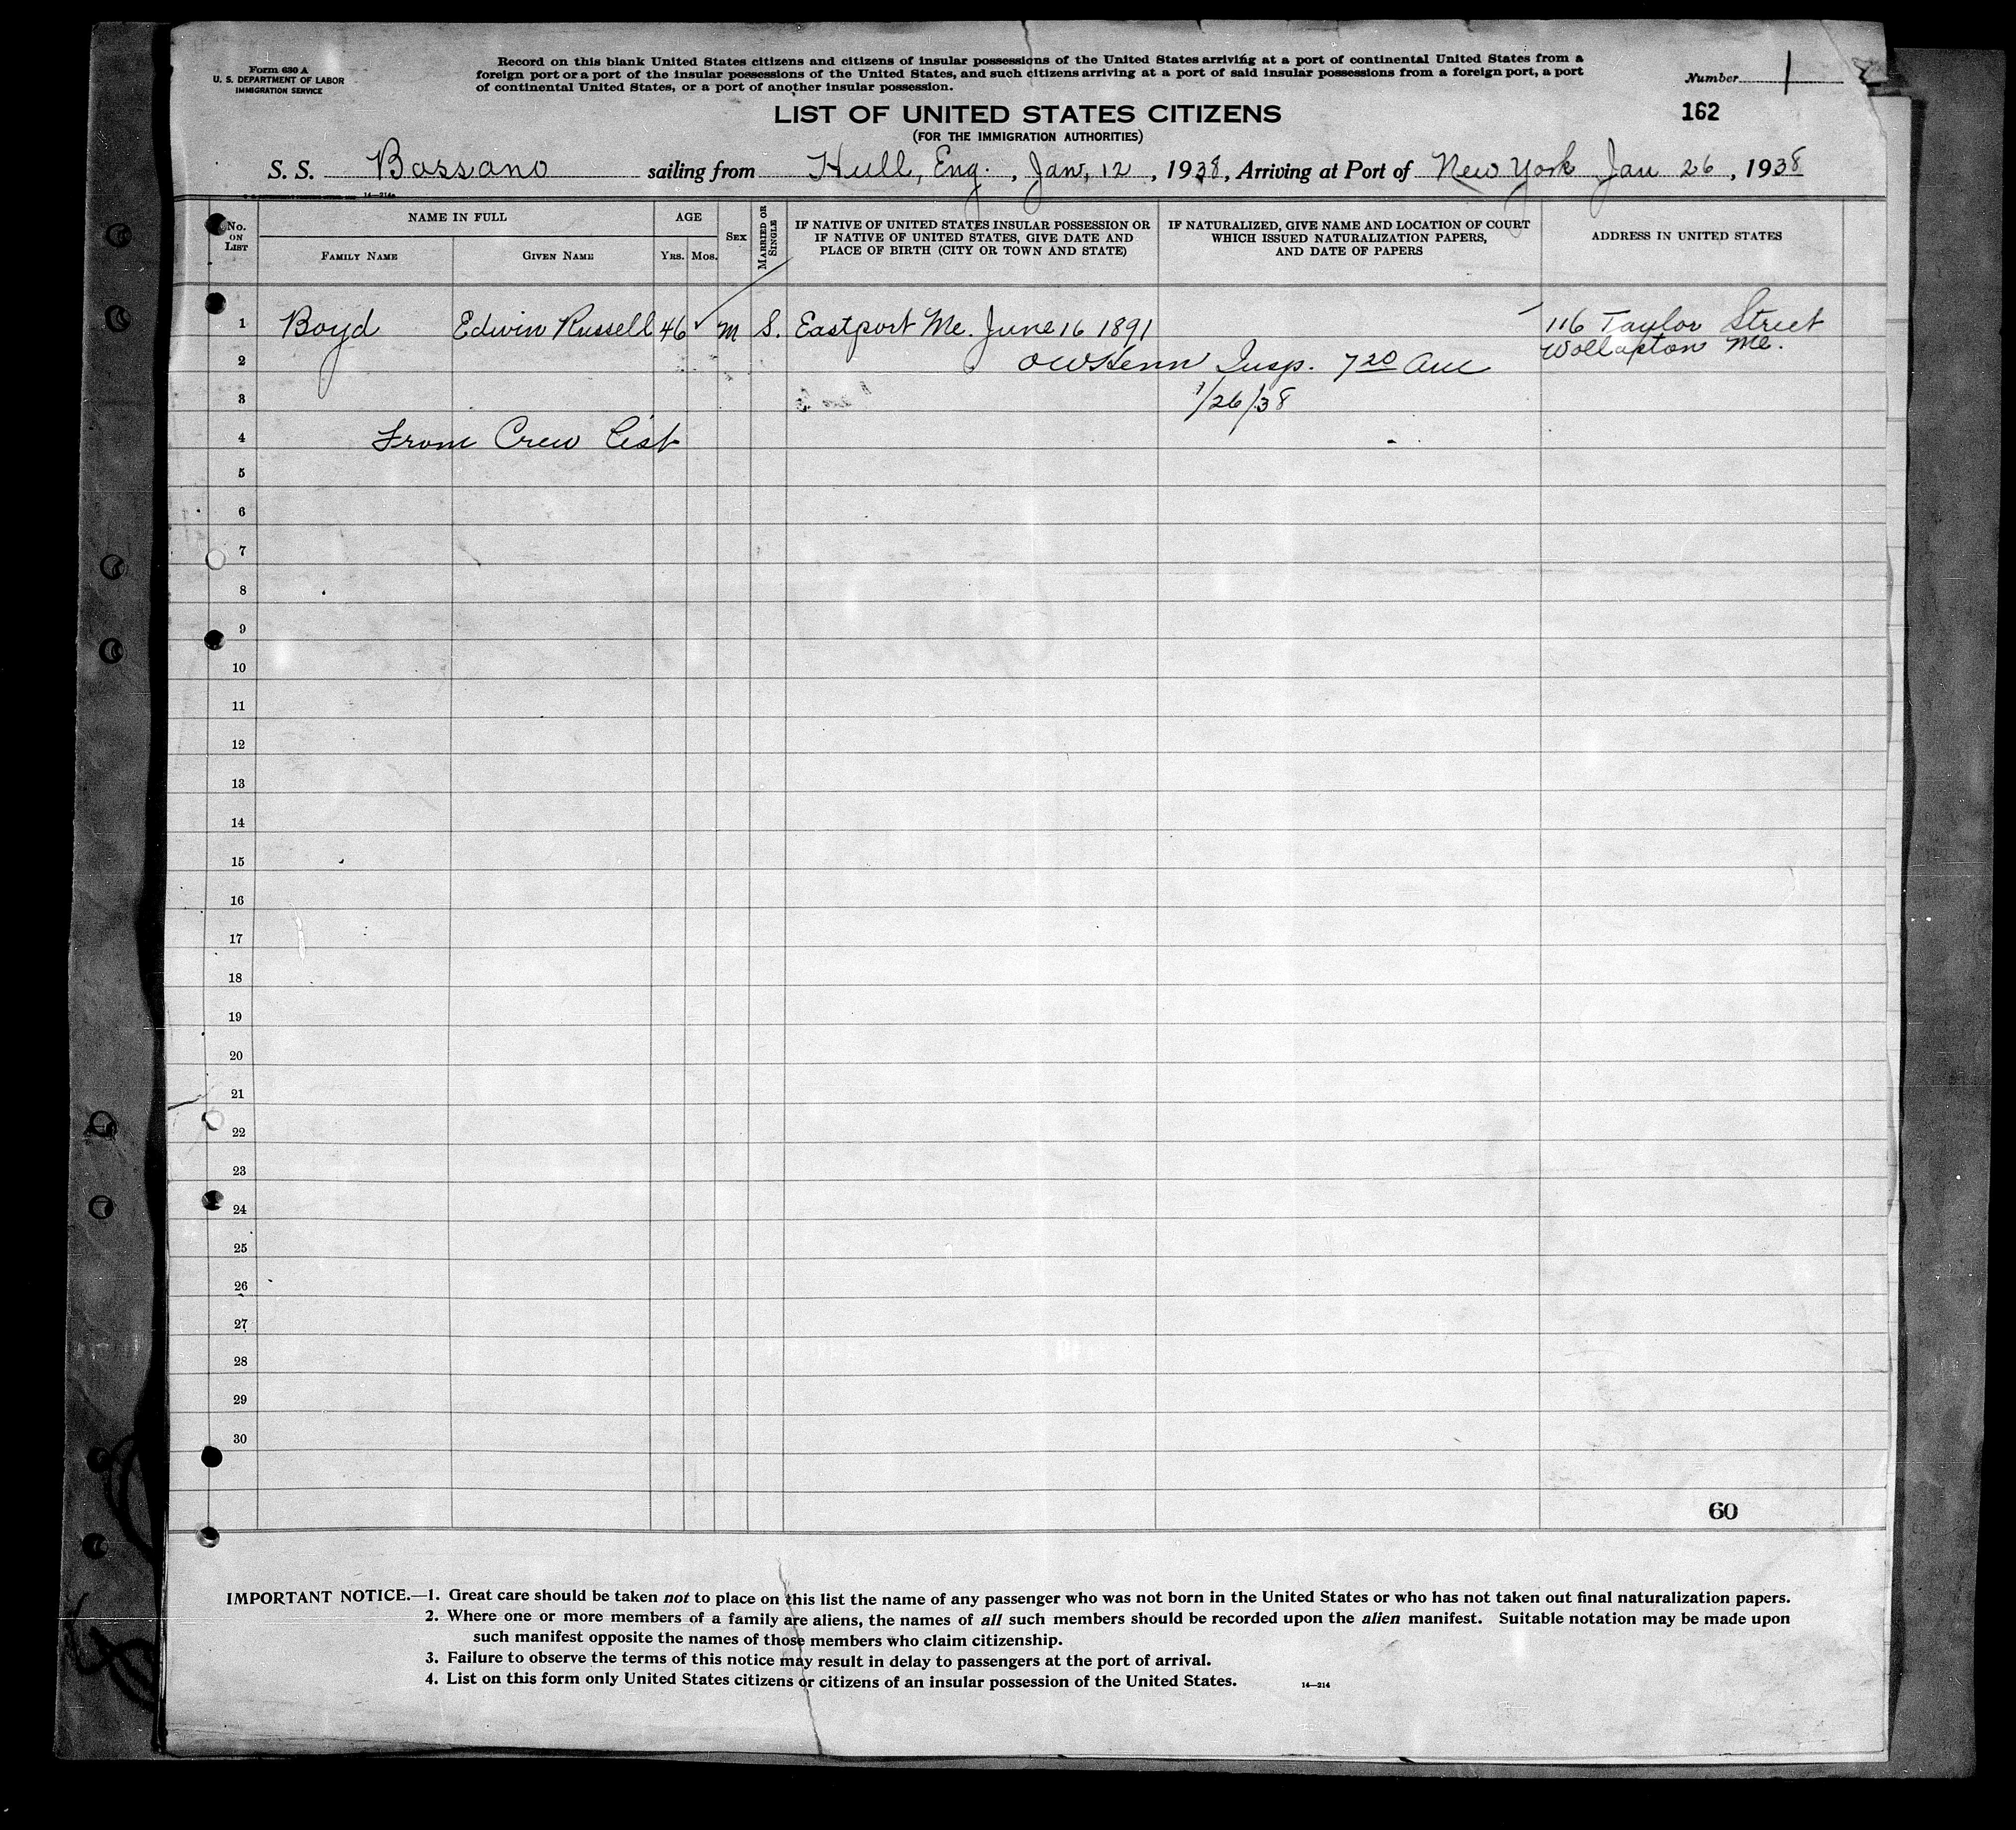 Form 630 A
U. S. DEPARTMENT OF LABOR
IMMIGRATION SERVICE
Record on this blank United States citizens and citizens of insular possessions of the United States arriving at a port of continental United States from a
foreign port or a port of the insular possessions of the United States, and such citizens arriving at a port of said insular possessions from a foreign port, a port
of continental United States, or a port of another insular possession.
Number 1
162
LIST OF UNITED STATES CITIZENS
(FOR THE IMMIGRATION AUTHORITIES)
S. S. Bassano sailing from Hull, Eng. , Jan, 12 , 1938, Arriving at Port of New York Jan 26 , 1938
14—214a
No. ON LIST
NAME IN FULL
FAMILY NAME
GIVEN NAME
AGE
YRS. MOS.
SEX
MARRIED OR SINGLE
IF NATIVE OF UNITED STATES INSULAR POSSESSION OR
IF NATIVE OF UNITED STATES, GIVE DATE AND
PLACE OF BIRTH (CITY OR TOWN AND STATE)
IF NATURALIZED, GIVE NAME AND LOCATION OF COURT
WHICH ISSUED NATURALIZATION PAPERS,
AND DATE OF PAPERS
ADDRESS IN UNITED STATES
1 Boyd Edwin Russell 46 ✓ m S. Eastport Me. June 16 1891 116 Taylor Street
Me.
2 Insp. 7 20
3 1/26/38
4 From Crew List
5
6
7
8
9
10
11
12
13
14
15
16
17
18
19
20
21
22
23
24
25
26
27
28
29
30
60
IMPORTANT NOTICE.—1. Great care should be taken not to place on this list the name of any passenger who was not born in the United States or who has not taken out final naturalization papers.
2. Where one or more members of a family are aliens, the names of all such members should be recorded upon the alien manifest. Suitable notation may be made upon
such manifest opposite the names of those members who claim citizenship.
3. Failure to observe the terms of this notice may result in delay to passengers at the port of arrival.
4. List on this form only United States citizens or citizens of an insular possession of the United States.
14—214